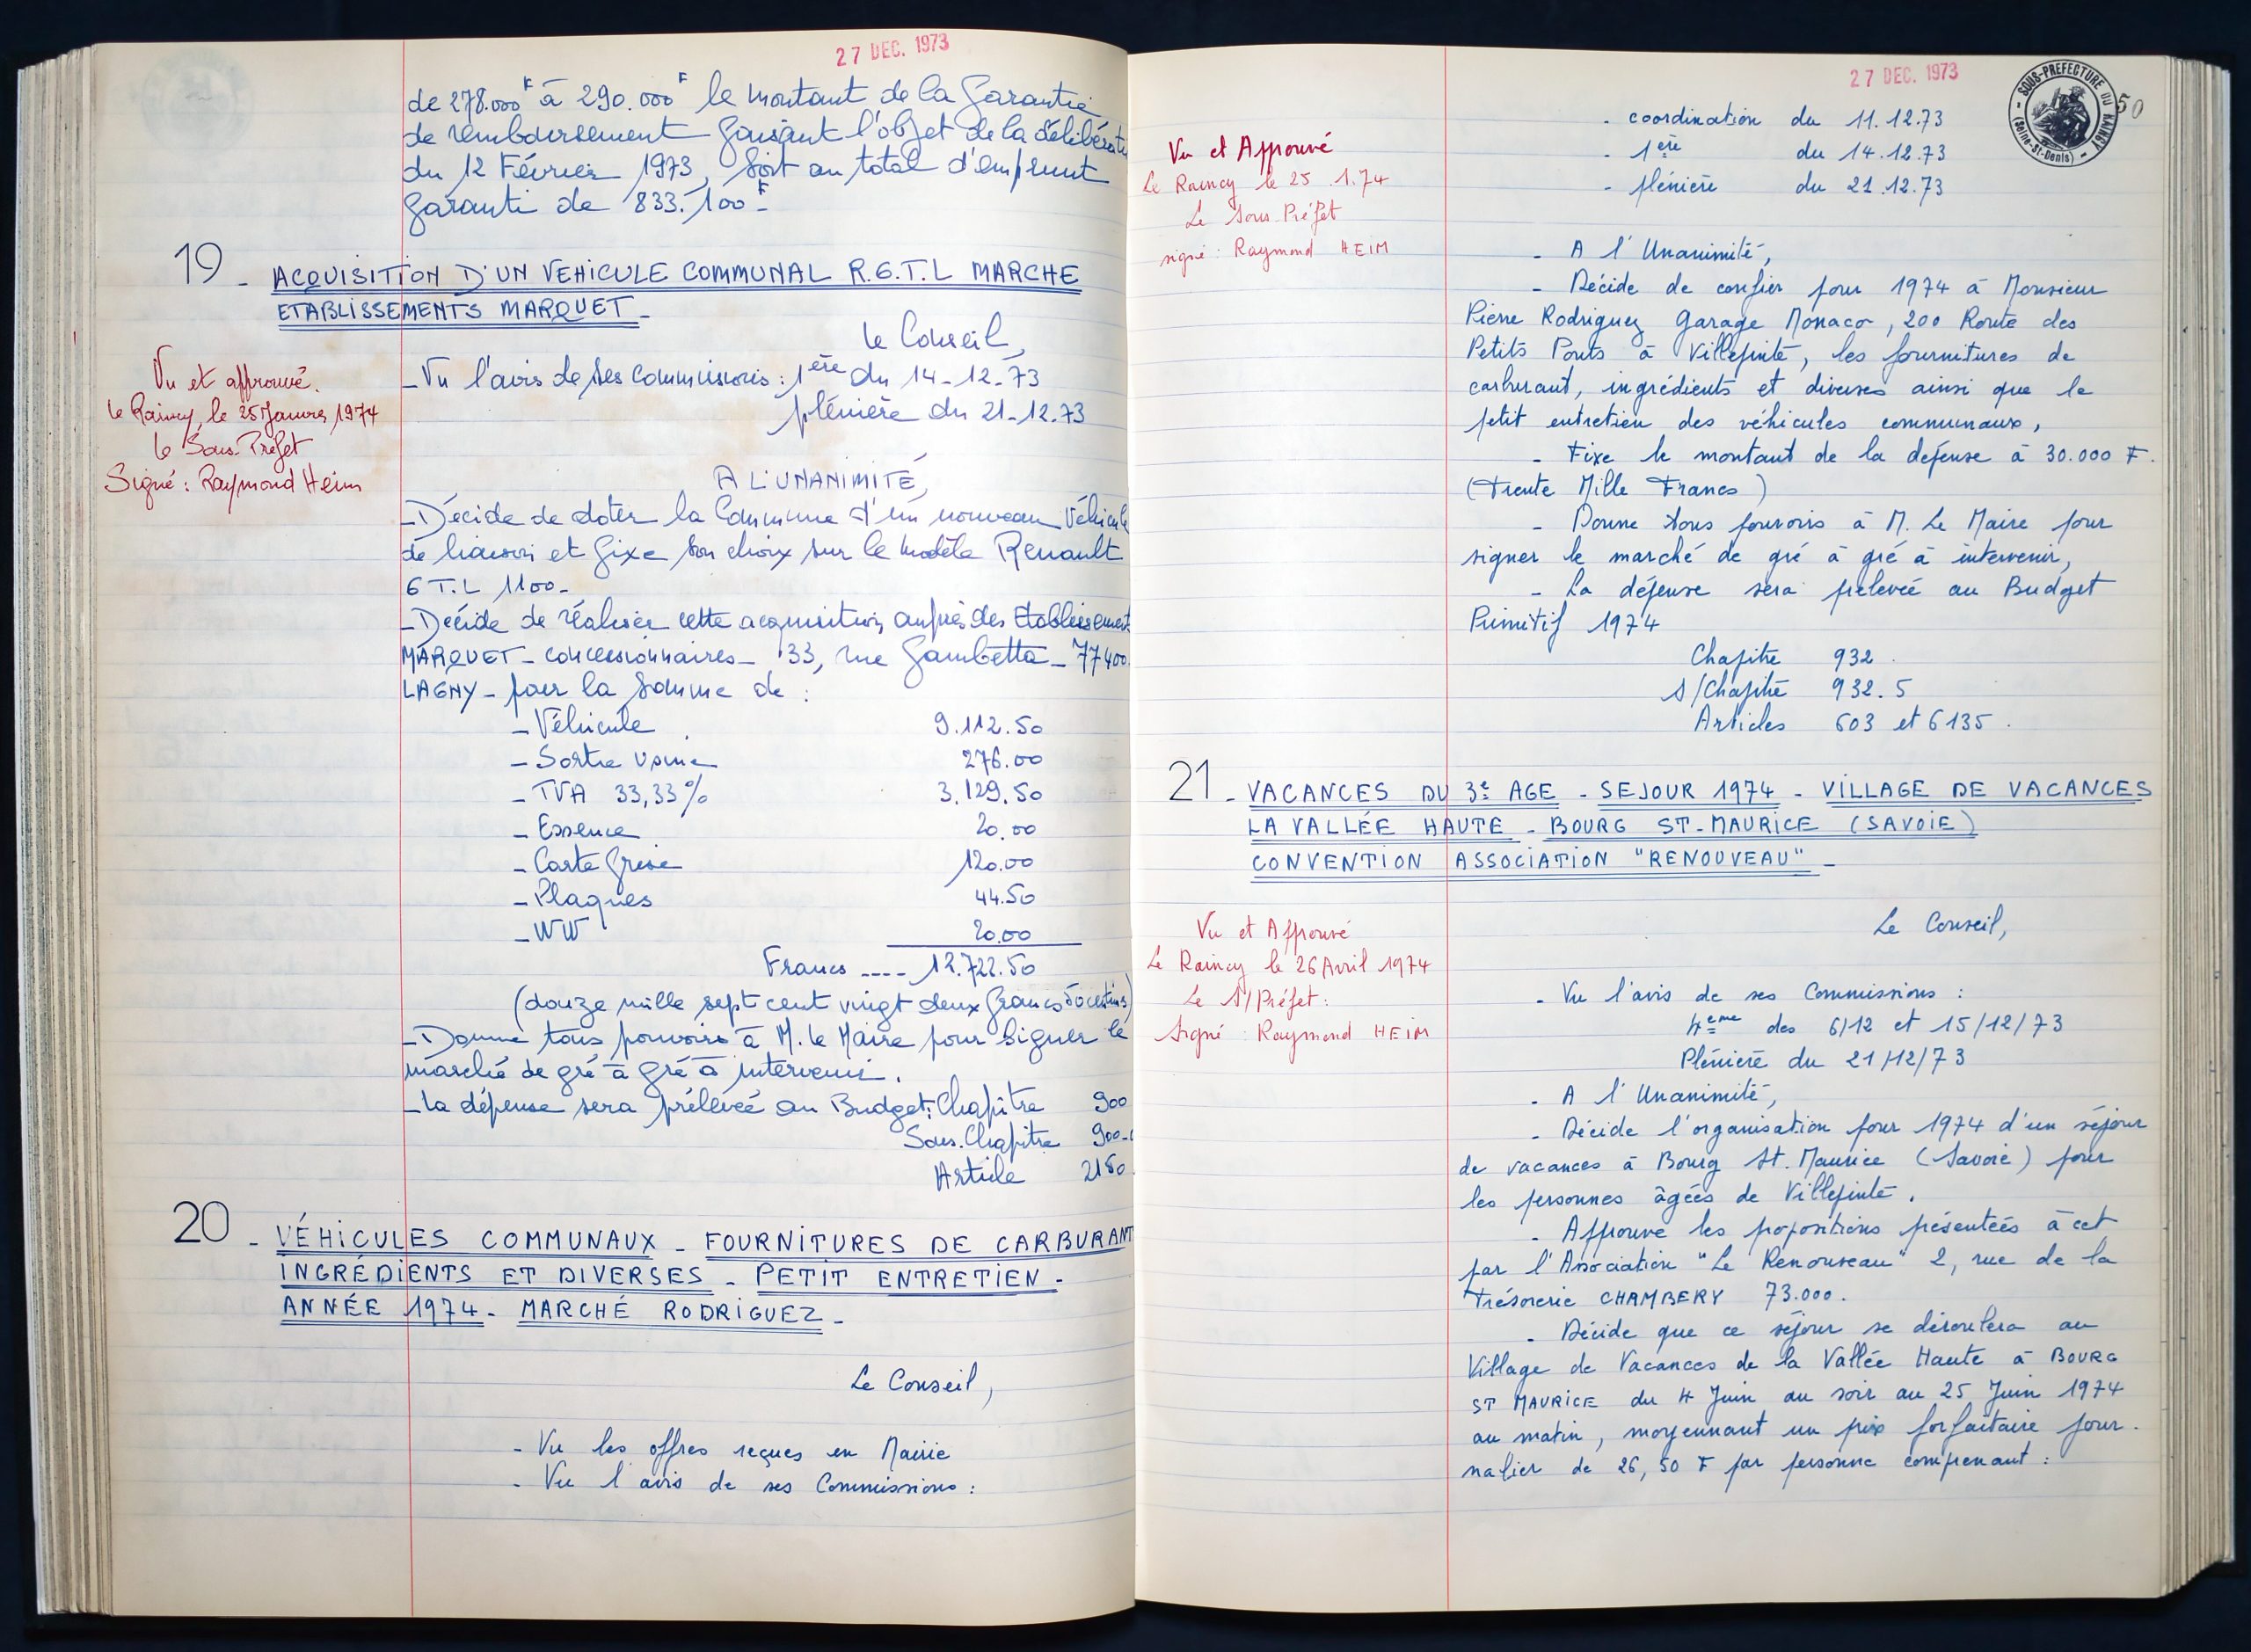 27 DEC. 1973
de 278.000F à 290.000F le montant de la garantie
de remboursement faisant l'objet de la délibérat
du 12 Février 1973, soit au total d'emprunt
garanti de 833.100F-
19 - ACQUISITION D'UN VEHICULE COMMUNAL R.6.T.L MARCHE
ETABLISSEMENTS MARQUET -
Le Conseil,
Vu et approuvé.
Le Raincy, le 25 Janvier 1974
Le Sous-Préfet
Signé : Raymond Heim
- Vu l'avis de ses Commissions : 1ère du 14-12-73
plénière du 21-12.73
A L'UNANIMITÉ,
- Décide de doter la Commune d'un nouveau véhicule
de liaison et fixe son choix sur le modèle Renault
6 T.L 1100-
- Décide de réaliser cette acquisition auprès des Etablissements
MARQUET - concessionnaires - 33, rue Gambetta - 77400
LAGNY - pour la somme de :
- Véhicule 9.112.50
- Sortie usine 276.00
- TVA 33,33% 3.129.50
- Essence 20.00
- Carte grise 120.00
- Plaques 44.50
- WW 20.00
Francs ---- 12.722.50
(douze mille sept cent vingt deux francs 50 centimes)
- Donne tous pouvoirs à M. le Maire pour signer le
marché de gré à gré à intervenir.
- La dépense sera prélevée au Budget: Chapitre 900
Sous.Chapitre 900-
Article 2150
20 - VÉHICULES COMMUNAUX - FOURNITURES DE CARBURANT
INGRÉDIENTS ET DIVERSES - PETIT ENTRETIEN -
ANNÉE 1974 - MARCHÉ RODRIGUEZ -
Le Conseil,
- Vu les offres reçues en Mairie
- Vu l'avis de ses Commissions :
27 DEC. 1973
SOUS-PREFECTURE DU RAINCY
(Seine-St-Denis)
50
- coordination du 11.12.73
- 1ère du 14.12.73
- plénière du 21.12.73
Vu et Approuvé
Le Raincy le 25.1.74
Le Sous-Préfet
signé : Raymond HEIM
- A l'Unanimité,
- Décide de confier pour 1974 à Monsieur
Pierre Rodriguez Garage Monaco, 200 Route des
Petits Ponts à Villepinte, les fournitures de
carburant, ingrédients et diverses ainsi que le
petit entretien des véhicules communaux,
- Fixe le montant de la dépense à 30.000 F.
(Trente Mille Francs)
- Donne tous pouvoirs à M. Le Maire pour
signer le marché de gré à gré à intervenir,
- La dépense sera prélevée au Budget
Primitif 1974
Chapitre 932.
s/Chapitre 932.5
Articles 603 et 6135.
21 - VACANCES DU 3e AGE - SEJOUR 1974 - VILLAGE DE VACANCES
LA VALLÉE HAUTE - BOURG ST-MAURICE (SAVOIE)
CONVENTION ASSOCIATION "RENOUVEAU" -
Vu et Approuvé
Le Raincy le 26 Avril 1974
Le S/Préfet :
Signé : Raymond HEIM
Le Conseil,
- Vu l'avis de ses Commissions :
4eme des 6/12 et 15/12/73
Plénière du 21/12/73
- A l'Unanimité,
- Décide l'organisation pour 1974 d'un séjour
de vacances à Bourg St. Maurice (Savoie) pour
les personnes âgées de Villepinte.
- Approuve les propositions présentées à cet
par l'Association "Le Renouveau" 2, rue de la
Trésorerie CHAMBERY 73.000.
- Décide que ce séjour se déroulera au
Village de Vacances de la Vallée Haute à BOURG
ST MAURICE du 4 Juin au soir au 25 Juin 1974
au matin, moyennant un prix forfaitaire jour-
nalier de 26,50 F par personne comprenant :